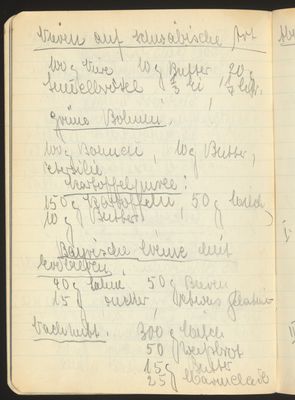 Nieren auf schwäbische Art
100 g Niere 10 g Butter, 20 g
Semmelbrösel ½ Ei,
Grüne Bohnen,
100 g Bohnen, 10 g Butter,
Petersilie
Kartoffelpuree:
150 g Kartoffeln, 50 g Milch
10 g Butter
Bayrische Creme mit
Erdbeeren,
40 g Sahne 50 g Beeren
15 g Zucker, etwas Gelatine
Nachtisch. 300 g Milch
50 g Weißbrot
15 g Butter
25 g Marmelade